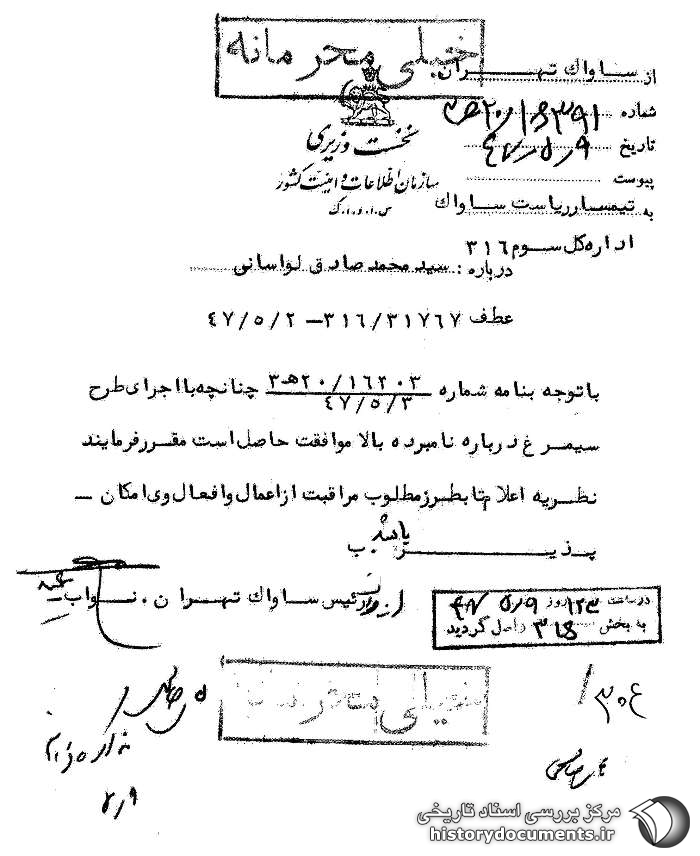 خیلی محرمانه
از ساواك تهران
شماره ۲۰/۱۶۳۹۱
تاریخ ۴۷/۵/۹
پیوست
نخست وزیری
سازمان اطلاعات و امنیت کشور
س.ا.و.ا.ک
به تیمسار ریاست ساواك
اداره کل سوم ۳۱۶
درباره : سید محمد صادق لواسانی
عطف ۳۱۶/۳۱۷۶۷ – ۴۷/۵/۲
باتوجه بنامه شماره ۲۰/۱۶۲۰۳ ه‍ ۳ ۴۷/۵/۳ چنانچه با اجرای طرح
سیمرغ درباره نامبرده بالا موافقت حاصل است مقرر فرمایند
نظریه اعلام تا بطرز مطلوب مراقبت از اعمال و افعال وی امکان –
پذیر باشد. ب
رئیس ساواك تهران . نواب
در ساعت روز ۴۷/۵/۹
به بخش ۳۱۶ واصل گردید
خیلی محرمانه
۵/۹
مرکز بررسی اسناد تاریخی
historydocuments.ir